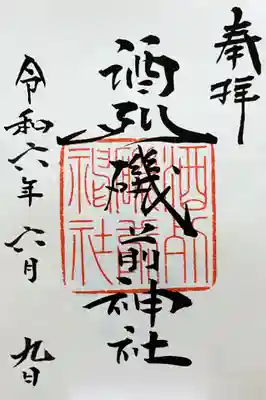 奉拝
酒列磯前神社
令和六年六月九日
酒列磯前神社